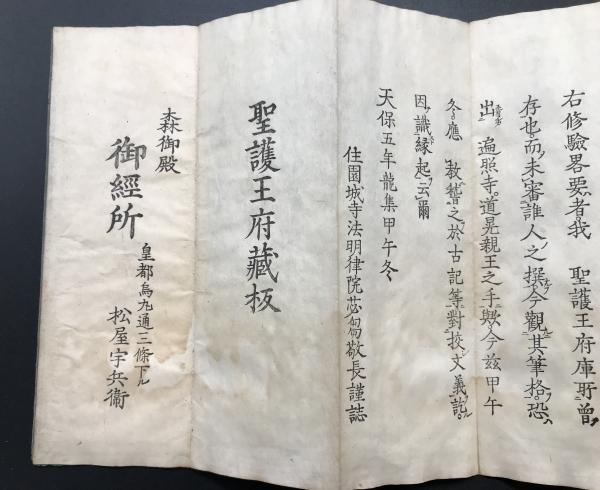 右修驗畧要者我　聖護王府庫所曾
存也而未審誰人之撰今觀其筆格恐
出　遍照寺道晃親王之手歟今茲甲午
冬應　教讐之於古記等對挍文義訖
因識緣起云爾
天保五年龍集甲午冬
住園城寺法明律院苾芻敬長謹誌
聖護王府藏板
森御殿
御經所
皇都烏丸通三條下ル
松屋宇兵衞